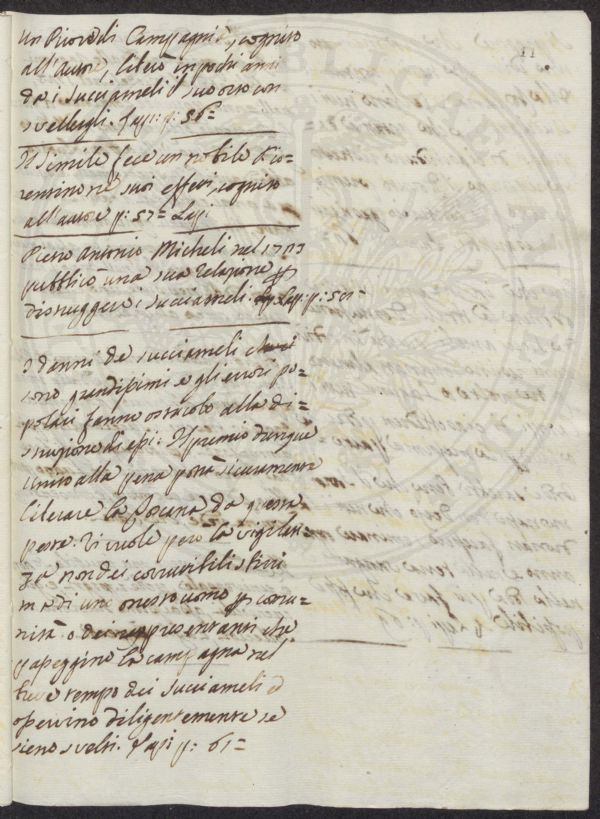 11
un Piovo di Campagna, cognito
all'autore, liberò in pochi anni
da i succiameli il suo orto con
svellergli. Lapi: p: 56=
Il simile fece un nobile Fio=
rentino ne' suoi effetti, cognito
all'autore p: 57= Lapi
Pietro Antonio Micheli nel 1723
pubblicò una sua relazione p
distruggere i succiameli. Lapi: p: 50=
I danni de succiameli
sono grandissimi e gli errori po=
polari fanno ostacolo alla di=
struzione di essi. Il premio dunque
unito alla pena potrà sicuramente
liberare la Toscana da questa
peste. Vi vuole però la vigilan=
za non dei corruttibili
ma di uno onesto uomo p comu=
nità o dei rappresentanti che
passeggino la campagna nel
breve tempo dei succiameli ed
osservino diligentemente se
sieno svelti. Lapi p: 61=